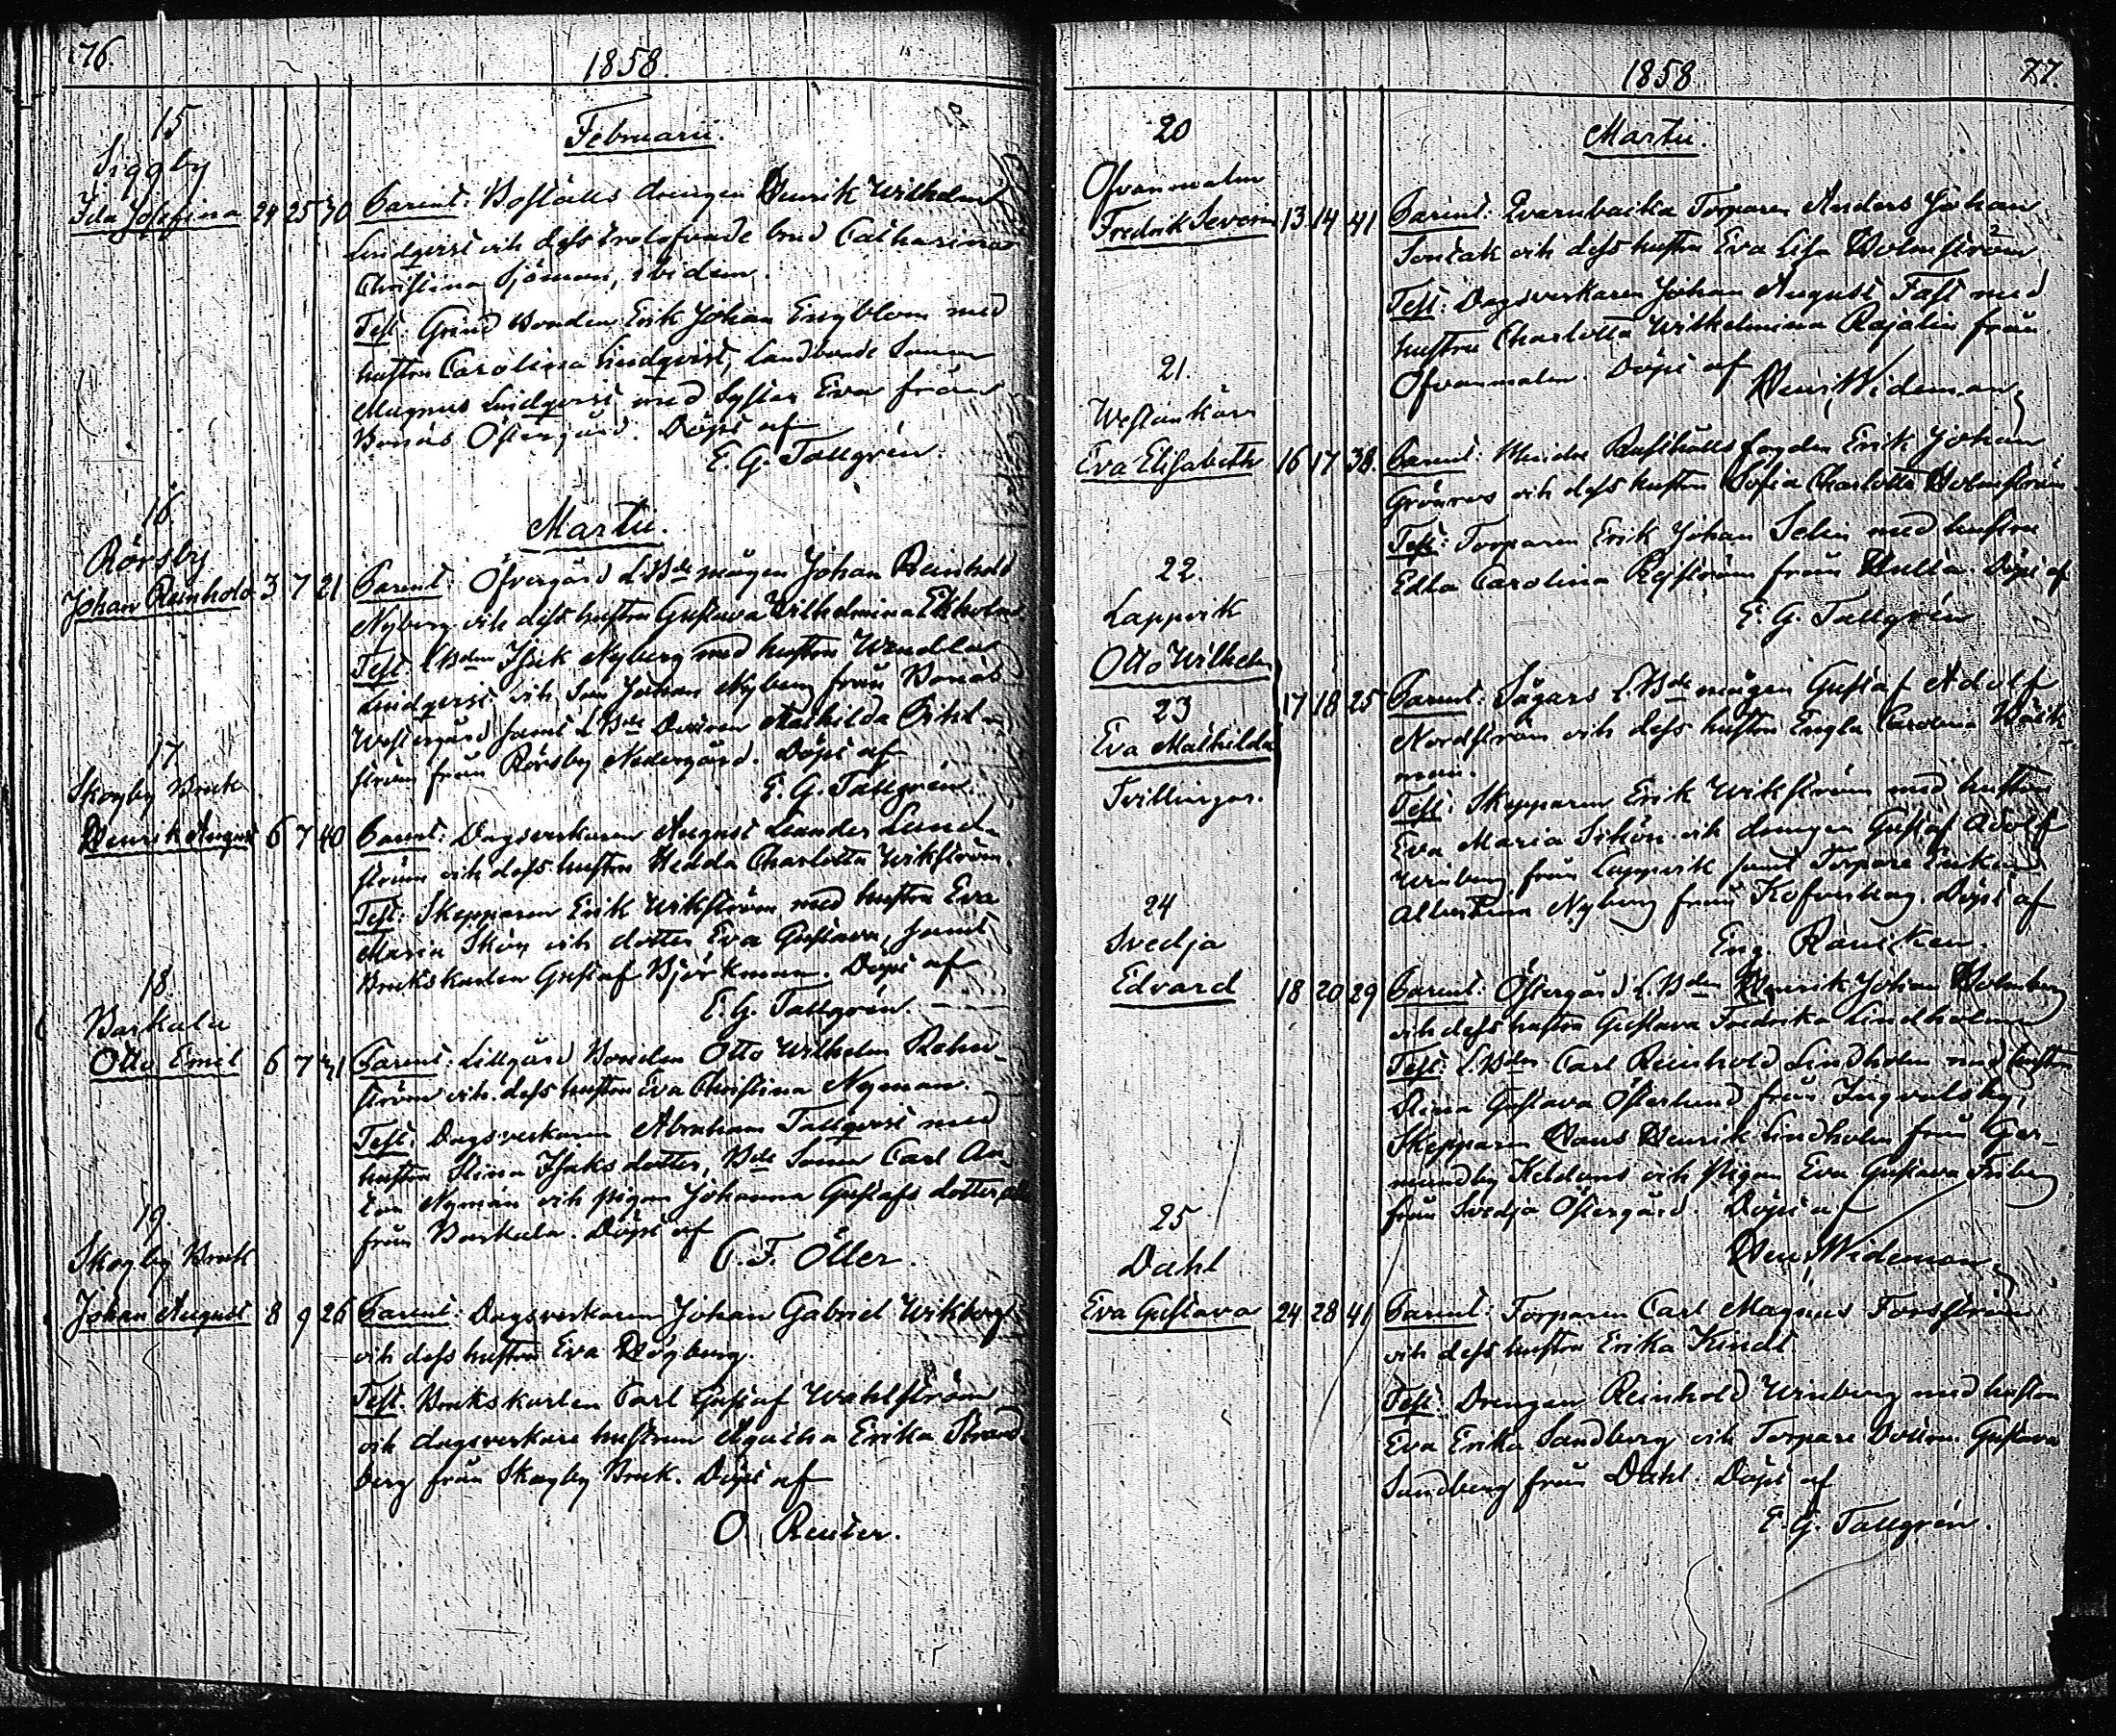 76.
1858.
Februarii.
15
Siggby
Ida Josefina 24 25 30 Parent: Boställs drengen Henrik Wilhelm
Lindqvist och dess trolofvade brud Catharina
Christina Sjöman, ibidem.
Test: Grind Bonden Erik Johan Engblom med
hustru Carolina Lindqvist, Landbonde Sonen
Magnus Lindqvist med Syster Eva från
Bonäs Östergård. Döpt af
E. G. Tallgrén.
Martii.
16.
Rörsby
Johan Reinhold 3 7 21 Parent: Öfvergård L.Bde mågen Johan Reinhold
Nyberg och dess hustru Gustava Wilhelmina Ekholm.
Test: LBden Isak Nyberg med hustru Wendla
Lindqvist och Son Johan Nyberg från Bonäs
Westergård samt LBde Dottren Mathilda
ström från Rörsby Nedergård. Döpt af
E. G. Tallgrén.
17
Skogby Bruk
Henrik August 6 7 40 Parent: Dagsverkaren August Leander Lund-
ström och dess hustru Hedda Charlotta Wikström.
Test: Skepparen Erik Wikström med hustru Eva
Maria Skön och dotter Eva Gustava, samt
Brukskarlen Gustaf Björkman. Döpt af
E. G. Tallgrén.
18
Baskala
Otto Emil 6 7 31 Parent: Lillgård Bonden Otto Wilhelm Rehn-
ström och dess hustru Eva Christina Nyman.
Test: Dagsverkaren Abraham Tallqvist med
hustru Stina Isaksdotter, Bde Sonen Carl An-
ton Nyman och pigan Johanna Gustafsdotter alla
från Baskala. Döpt af
C. F. Öller.
19.
Skogby Bruk
Johan August 8 9 26 Parent: Dagsverkaren Johan Gabriel Wikberg
och dess hustru Eva Högberg.
Test. Brukskarlen Carl Gustaf Wahlström
och dagsverkare hustrun Agatha Erika Strand-
berg från Skogby Bruk. Döpt af
O. Reuter.
1858 77.
Martii.
20
Ofvanmalm
Fredrik Severin 13 14 41 Parent: Qvarnbacka Torparen Anders Johan
Sontak och dess hustru Eva Lisa Holmström.
Test: Dagsverkaren Johan August Fast med
hustru Charlotta Wilhelmina Rajalin från
Ofvanmalm. Döpt af
Hen. Wideman
21.
Westankärr
Eva Elisabeth 16 17 38. Parent: Mindre Rusthålls fogden Erik Johan
Grönroos och dess hustru Sofia Charlotta Holmström.
Test: Torparen Erik Johan Selin med hustru
Edla Carolina Refström från Hulta. Döpt af
E. G. Tallgrén
22.
Lappvik
Otto Wilhelm
23
Eva Mathilda
Tvillingar.
17 18 25 Parent: Sågars L.Bde mågen Gustaf Adolf
Nordström och dess hustru Engla Carolina Bäck-
man.
Test: Skepparen Erik Wikström med hustru
Eva Maria Schön och drengen Gustaf Adolf
Winberg från Lappvik samt Torpare Enkan
Albertina Nyberg från Kofverhag. Döpt af
Eng. Rancken.
24
Svedja
Edvard 18 20 29 Parent: Östergård LBden Henrik Johan Holmberg
och dess hustru Gustava Fredrika Lindholm
Test: LBden Carl Reinhold Lindholm med hustru
Stina Gustava Österlund från Ingvalsby,
Skepparen Hans Henrik Lindholm från Ger-
mundby Heldans och Pigan Eva Gustava Friberg
från Svedja Östergård. Döpt af
Hen. Wideman
25
Dahl
Eva Gustava 24 28 41 Parent: Torparen Carl Magnus Forsström
och dess hustru Erika Kindt.
Test: Drengen Reinhold Winberg med hustru
Eva Erika Sandberg och Torpare Dottren Gustava
Sandberg från Dahl. Döpt af
E. G. Tallgrén.